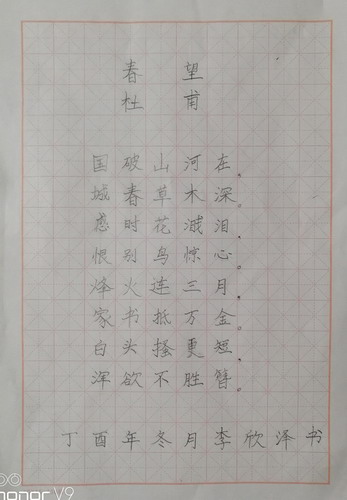 春望
杜甫
国破山河在，
城春草木深。
感时花溅泪，
恨别鸟惊心。
烽火连三月，
家书抵万金。
白头搔更短，
浑欲不胜簪。
丁酉年冬月李欣泽书
honor V9